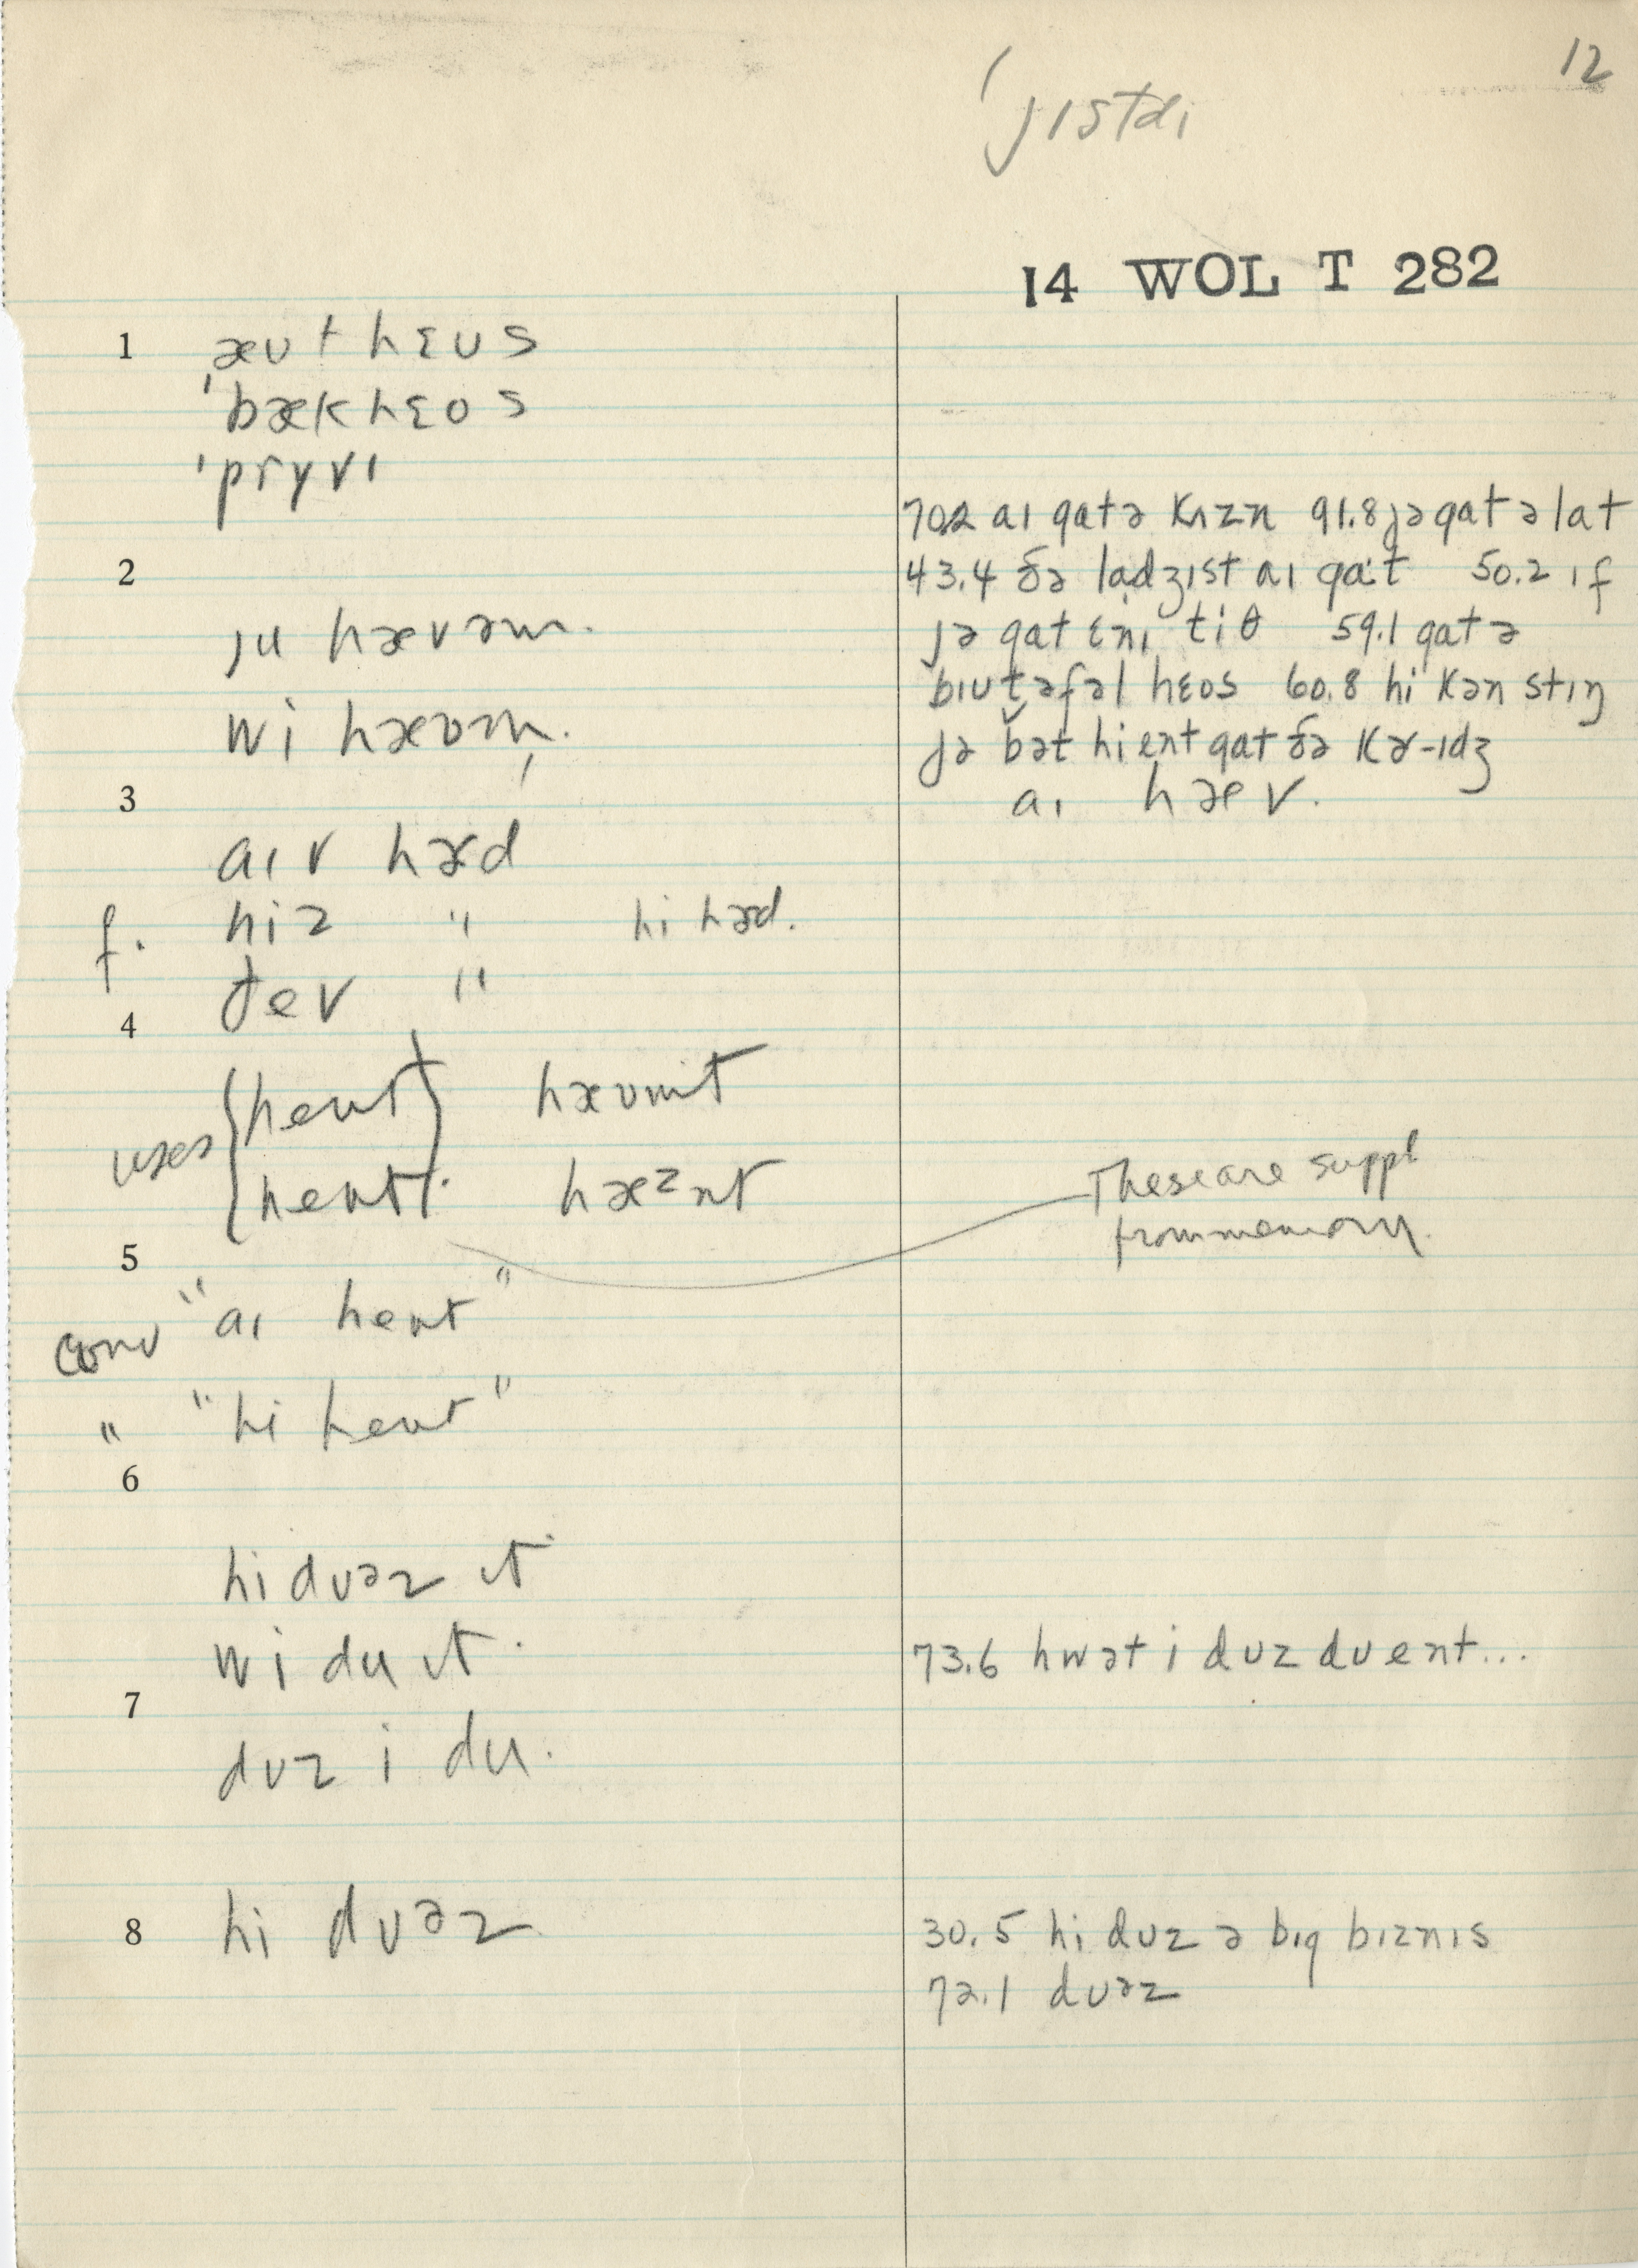 12
ˈjɪstdi
14 WOL T 282
1 ˌæʊthɛʊs
ˈbækhɛʊs
ˈprɣvɪ
70.2 aɪ gatə kʌzn 91.8 jə gat ə lat
2 43.4 ðə ladʒɪst aɪ gat 50.2 ɪf
ju hævəm. jə gat ɛnɪ tiθ 59.1 gat ə
bɪutəfəl hɛʊs 60.8 hi kən stɪŋ
wi hævm̩. jə bət hi ent gat ðə kɚ-ɪdʒ
3 aɪ hæv.
aɪv hɚd
f. hiz " hi hɚd.
ðev "
4
uses {hent} hævnɪt
{hent}. hæznt These are suppl
from memory.
5
conv "aɪ hent"
" "hi hent"
6
hi duəz ɪt
wi du ɪt. 73.6 hwət i duz du ent...
7
duz i du.
8 hi duəz 30.5 hi duz ə bɪg bɪznɪs
72.1 duəz